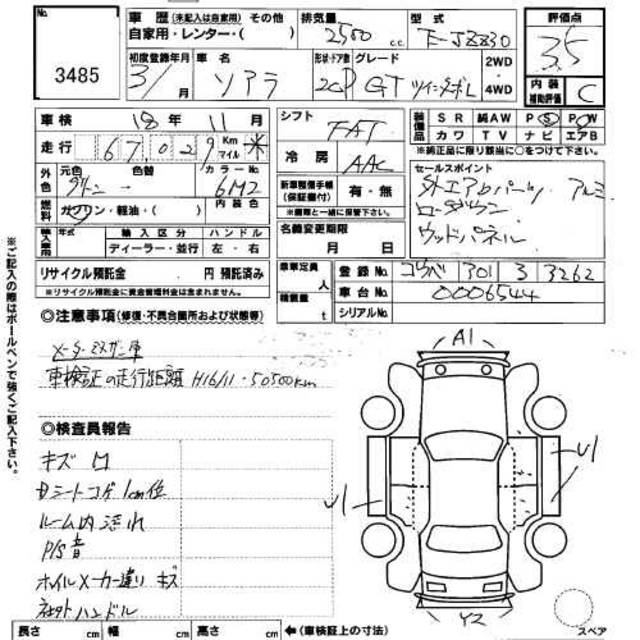 No.
3485
車歴 (未記入は自家用) その他
自家用・レンター・( )
排気量
2500 c.c.
型式
E-JZZ30
評価点
3.5
内装補助評価
C
初度登録年月
3/ 月
車名
ソアラ
形状・ドア数
2CP
グレード
GT ツインターボL
2WD
・
4WD
車検 18年 11月
走行 67,029 Km マイル ※
シフト
FAT
冷房
AAC
装備品
SR 純AW PS PW
カワ TV ナビ エアB
※純正品に限り該当に○をつけて下さい。
外色
元色 色替
グリーン →
カラーNo.
6M2
燃料
ガソリン・軽油・( )
内装色
新車整備手帳
(保証書付)
有・無
※書類と一緒に保管下さい。
セールスポイント
外エアロパーツ、アルミ
ローダウン
ウッドパネル
輸入車用
年式
輸入区分
ディーラー・並行
ハンドル
左・右
名義変更期限
月 日
リサイクル預託金 円 預託済み
※リサイクル預託金に資金管理料金は含まれません。
乗車定員 人
積載量 t
登録No. コウベ 301 ろ 3262
車台No. 0006544
シリアルNo.
◎注意事項(修復・不具合箇所および状態等)
メーターミスガン車
車検証の走行距離 H16/11・50500km
◎検査員報告
キズ 凹
Dシートコゲ1cm位
ルーム内汚れ
P/S音
ホイルメーカー違い キズ
社外ハンドル
A1
U1
U1
Y2
スペア
長さ cm 幅 cm 高さ cm ←(車検証上の寸法)
※ご記入の際はボールペンで強くご記入下さい。